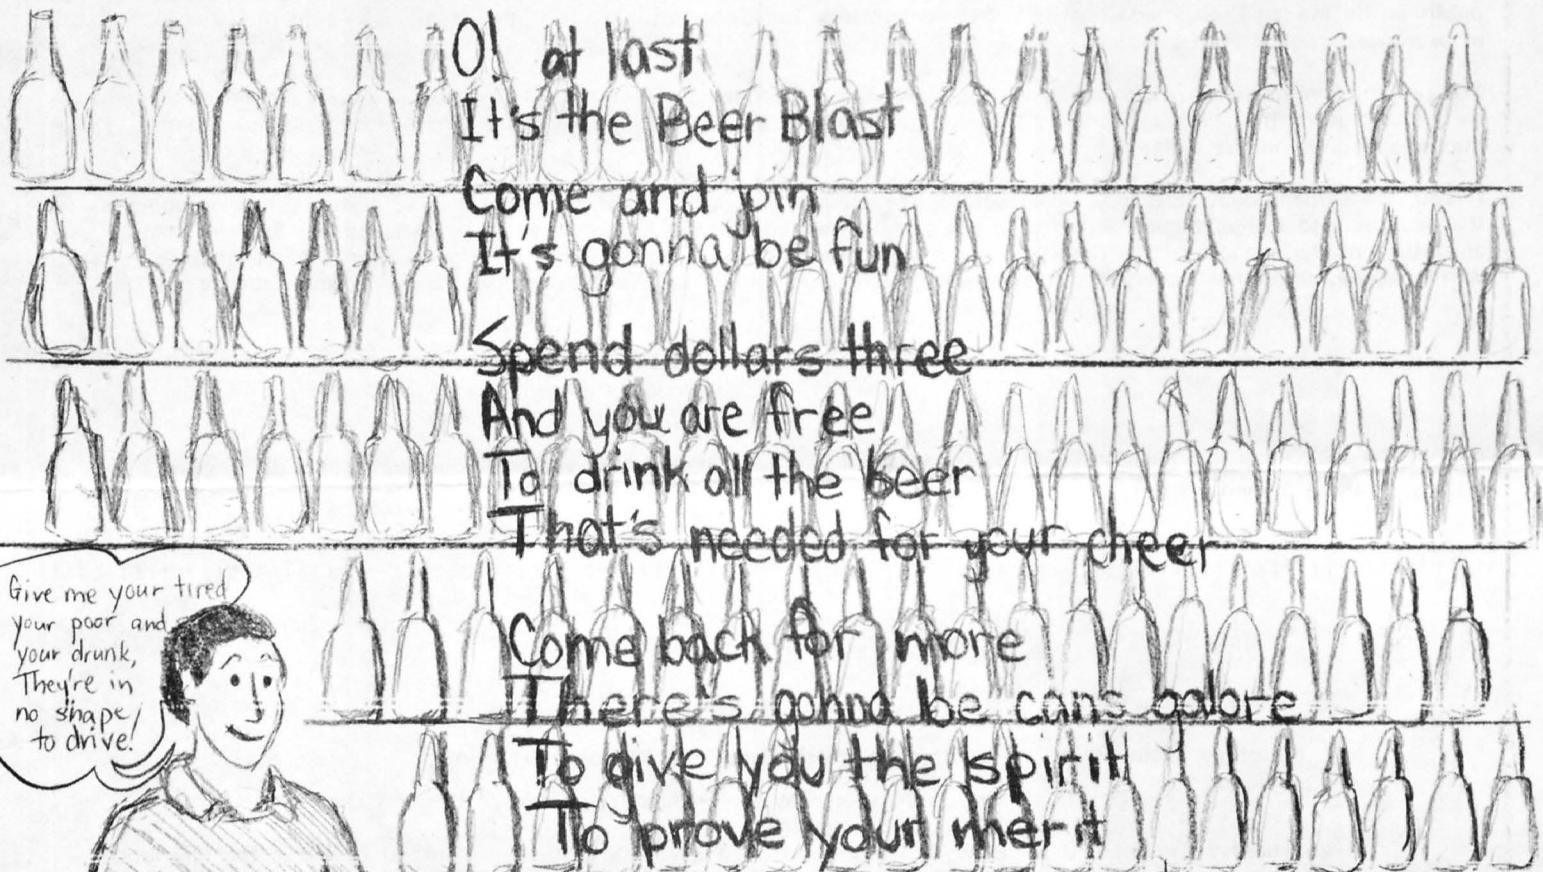 O! at last
It's the Beer Blast
Come and join
It's gonna be fun
Spend dollars three
And you are free
To drink all the beer
That's needed for your cheer
Come back for more
There's gonna be cans galore
To give you the spirit
To prove your merit
Give me your tired
your poor and
your drunk,
They're in
no shape
to drive!